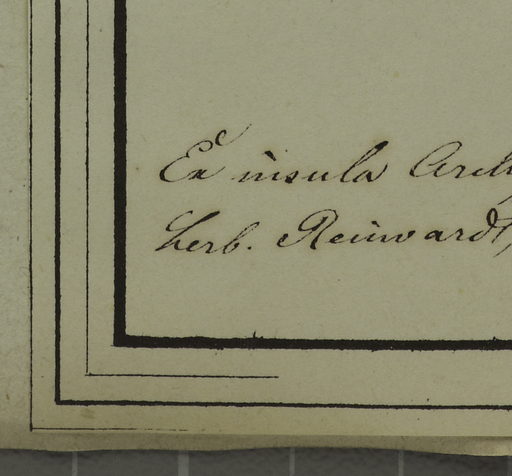 Ex insula
herb. Reinwardt,